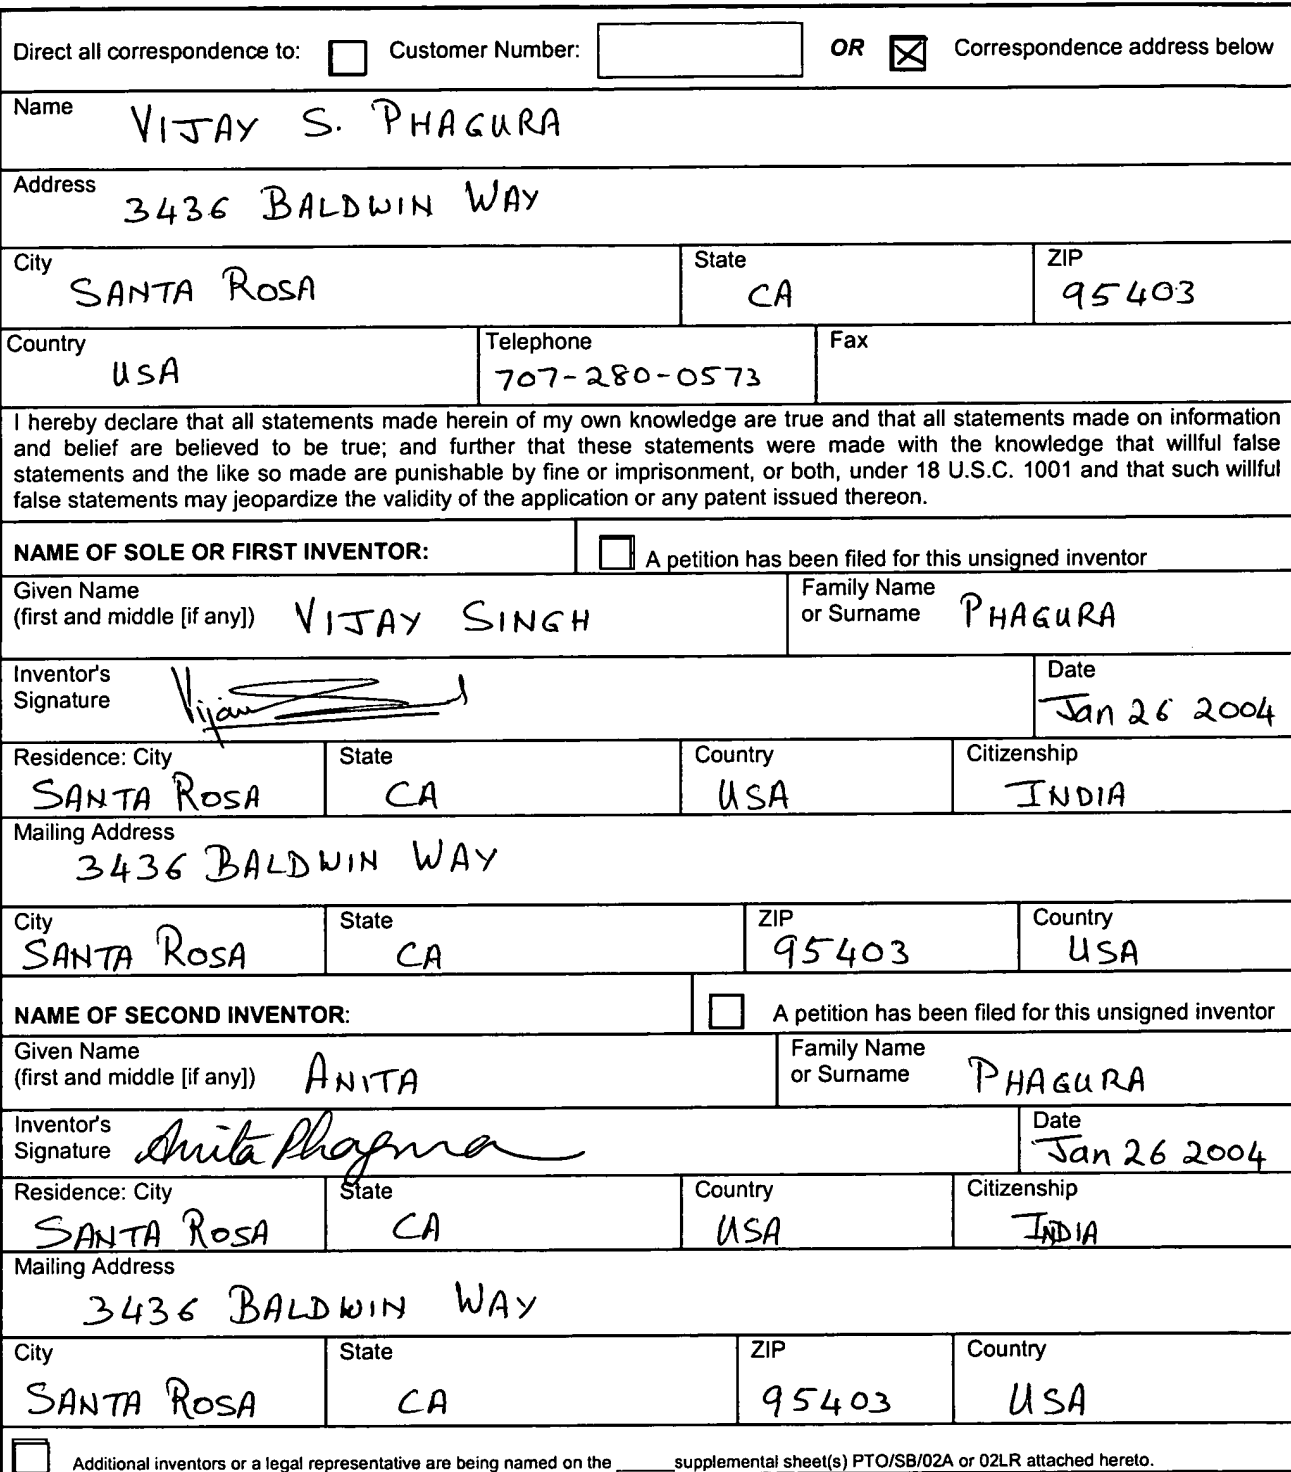 Direct all correspondence to: Customer Number: OR Correspondence address below
Name VIJAY S. PHAGURA
Address 3436 BALDWIN WAY
City State ZIP
SANTA ROSA CA 95403
Country Telephone Fax
USA 707-280-0573
I hereby declare that all statements made herein of my own knowledge are true and that all statements made on information
and belief are believed to be true; and further that these statements were made with the knowledge that willful false
statements and the like so made are punishable by fine or imprisonment, or both, under 18 U.S.C. 1001 and that such willful
false statements may jeopardize the validity of the application or any patent issued thereon.
NAME OF SOLE OR FIRST INVENTOR: A petition has been filed for this unsigned inventor
Given Name Family Name
(first and middle [if any]) VIJAY SINGH or Surname PHAGURA
Inventor's Date
Signature Vijay Jan 26 2004
Residence: City State Country Citizenship
SANTA ROSA CA USA INDIA
Mailing Address
3436 BALDWIN WAY
City State ZIP Country
SANTA ROSA CA 95403 USA
NAME OF SECOND INVENTOR: A petition has been filed for this unsigned inventor
Given Name Family Name
(first and middle [if any]) ANITA or Surname PHAGURA
Inventor's Date
Signature Anita Phagura Jan 26 2004
Residence: City State Country Citizenship
SANTA ROSA CA USA INDIA
Mailing Address
3436 BALDWIN WAY
City State ZIP Country
SANTA ROSA CA 95403 USA
Additional inventors or a legal representative are being named on the _____ supplemental sheet(s) PTO/SB/02A or 02LR attached hereto.